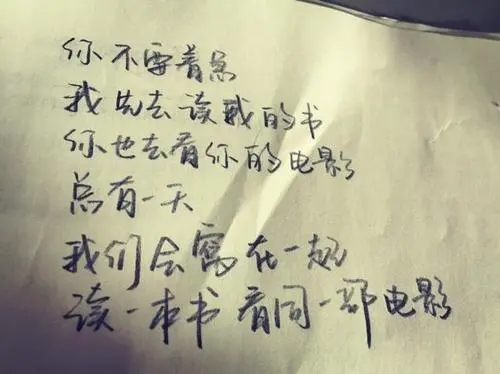 你不要着急
我先去读我的书
你也去看你的电影
总有一天
我们会窝在一起
读一本书 看同一部电影